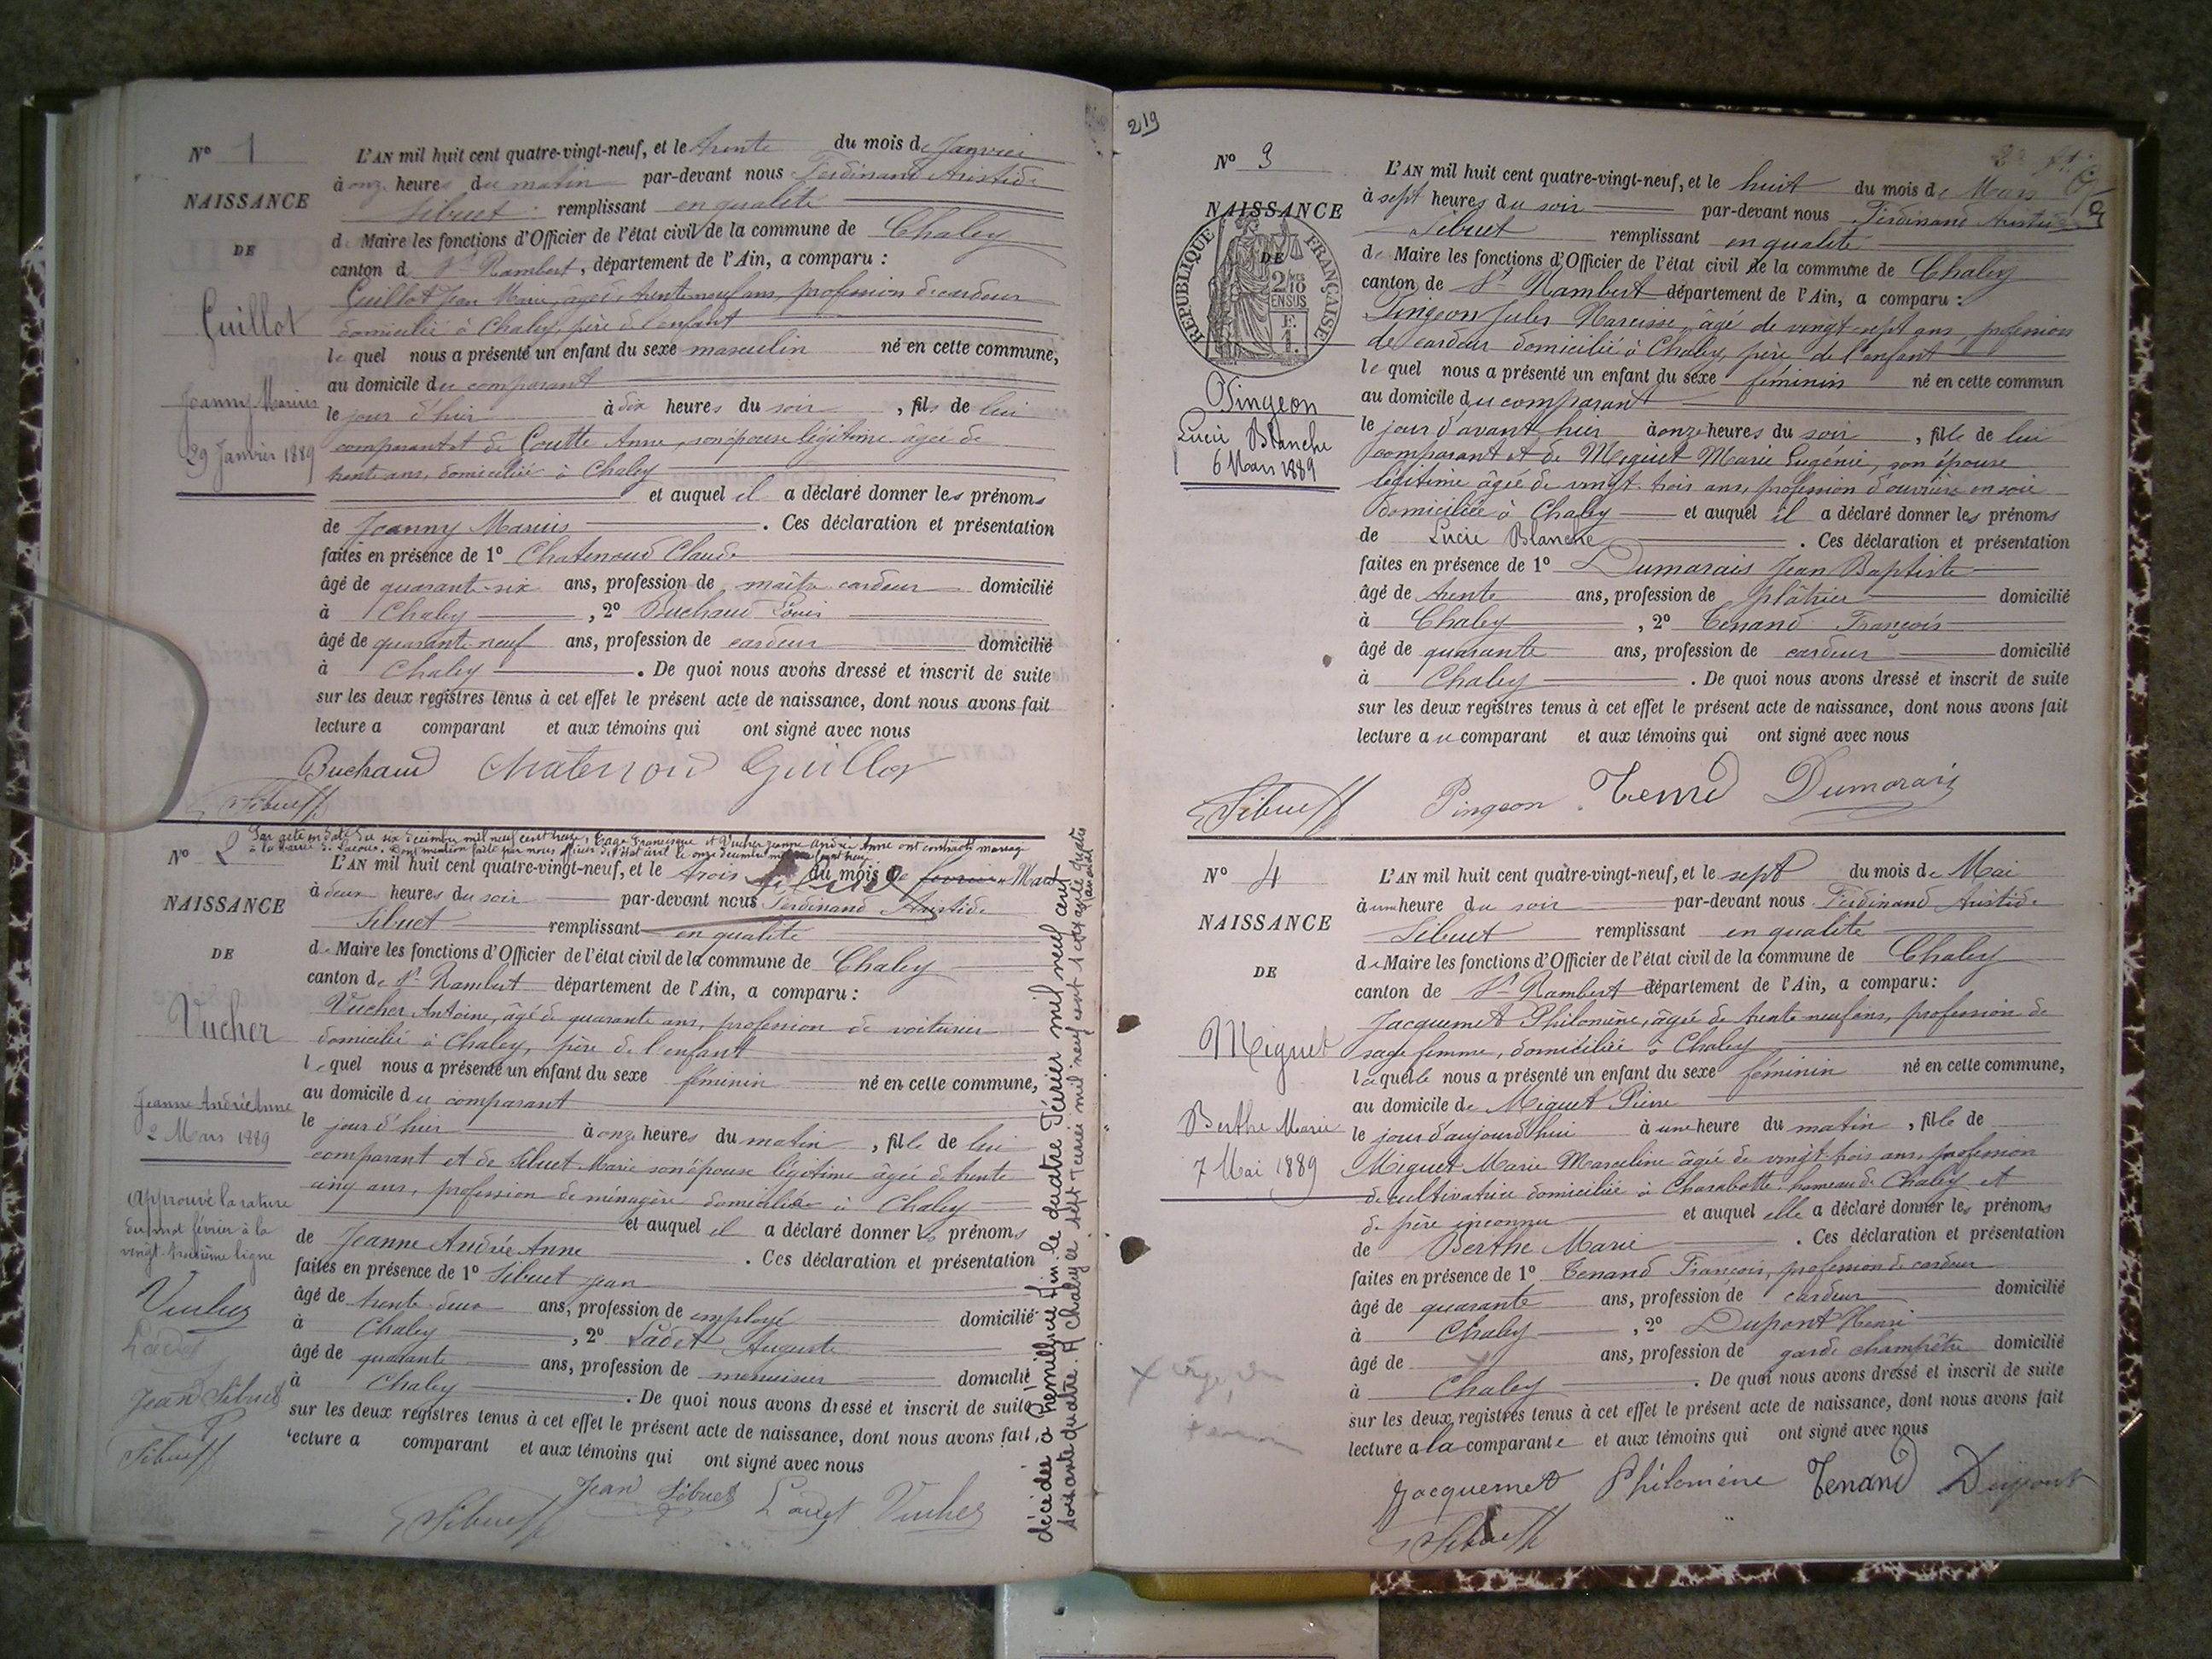 N° 1
NAISSANCE
DE
Guillot
Jeanny Marius
29 Janvier 1889
L'AN mil huit cent quatre-vingt-neuf, et le trente du mois de Janvier
à onze heures du matin par-devant nous Ferdinand Aristide
Sibuet remplissant en qualité
de Maire les fonctions d'Officier de l'état civil de la commune de Chaley
canton d St Rambert, département de l'Ain, a comparu :
Guillot Jean Marie, âgé de trente neuf ans, profession de cardeur
domicilié à Chaley, père de l'enfant
lequel nous a présenté un enfant du sexe masculin né en cette commune,
au domicile du comparant
le jour d'hier à dix heures du soir, fils de lui
comparant et de Coutte Anne, son épouse légitime âgée de
trente ans, domiciliée à Chaley
et auquel il a déclaré donner les prénoms
de Jeanny Marius. Ces déclaration et présentation
faites en présence de 1° Chatenoud Claude
âgé de quarante-six ans, profession de maître cardeur domicilié
à Chaley, 2° Buchaud Louis
âgé de quarante neuf ans, profession de cardeur domicilié
à Chaley. De quoi nous avons dressé et inscrit de suite
sur les deux registres tenus à cet effet le présent acte de naissance, dont nous avons fait
lecture a comparant et aux témoins qui ont signé avec nous
Buchaud Chatenoud Guillot
Sibuet
N° 2
Par acte en date du six décembre mil neuf cent treize, Francisque et Vucher Jeanne Andrée Anne ont contracté mariage
à la mairie de. Dont mention faite par nous officier de l'état civil le onze décembre mil neuf cent treize
NAISSANCE
DE
Vucher
Jeanne Andrée Anne
2 Mars 1889
approuvé la rature
du mot février à la
vingt-troisième ligne
Vucher
Ladet
Jean Sibuet
Sibuet
L'AN mil huit cent quatre-vingt-neuf, et le trois du mois de février Mars
à deux heures du soir par-devant nous Ferdinand Aristide
Sibuet remplissant en qualité
de Maire les fonctions d'Officier de l'état civil de la commune de Chaley
canton de St Rambert département de l'Ain, a comparu :
Vucher Antoine, âgé de quarante ans, profession de voiturier
domicilié à Chaley, père de l'enfant
lequel nous a présenté un enfant du sexe féminin né en cette commune,
au domicile du comparant
le jour d'hier à onze heures du matin, fille de lui
comparant et de Sibuet Marie son épouse légitime âgée de trente
cinq ans, profession de ménagère domiciliée à Chaley
et auquel il a déclaré donner les prénoms
de Jeanne Andrée Anne. Ces déclaration et présentation
faites en présence de 1° Sibuet Jean
âgé de trente deux ans, profession de employé domicilié
à Chaley, 2° Ladet Auguste
âgé de quarante ans, profession de menuisier domicilié
à Chaley. De quoi nous avons dressé et inscrit de suite
sur les deux registres tenus à cet effet le présent acte de naissance, dont nous avons fait
lecture a comparant et aux témoins qui ont signé avec nous
Jean Sibuet Ladet Vucher
Sibuet
décédée à Hémillieu Ain le quatre Février mil neuf cent
soixante quatre. A Chaley le sept Février mil neuf cent soixante quatre
219
N° 3
NAISSANCE
DE
RÉPUBLIQUE FRANÇAISE
2/10 EN SUS
F.
1.
Pingeon
Lucie Blanche
6 Mars 1889
L'AN mil huit cent quatre-vingt-neuf, et le huit du mois de Mars
à sept heures du soir par-devant nous Ferdinand Aristide
Sibuet remplissant en qualité
de Maire les fonctions d'Officier de l'état civil de la commune de Chaley
canton de St Rambert département de l'Ain, a comparu :
Pingeon Jules Narcisse, âgé de vingt-sept ans, profession
de cardeur domicilié à Chaley, père de l'enfant
lequel nous a présenté un enfant du sexe féminin né en cette commun
au domicile du comparant
le jour d'avant hier à onze heures du soir, fille de lui
comparant et de Miguet Marie Eugénie, son épouse
légitime âgée de vingt-trois ans, profession d'ouvrière en soie
domiciliée à Chaley et auquel il a déclaré donner les prénoms
de Lucie Blanche. Ces déclaration et présentation
faites en présence de 1° Dumarais Jean Baptiste
âgé de trente ans, profession de plâtrier domicilié
à Chaley, 2° Tenand François
âgé de quarante ans, profession de cardeur domicilié
à Chaley. De quoi nous avons dressé et inscrit de suite
sur les deux registres tenus à cet effet le présent acte de naissance, dont nous avons fait
lecture au comparant et aux témoins qui ont signé avec nous
Sibuet Pingeon Tenand Dumarais
N° 4
NAISSANCE
DE
Miguet
Berthe Marie
7 Mai 1889
L'AN mil huit cent quatre-vingt-neuf, et le sept du mois de Mai
à une heure du soir par-devant nous Ferdinand Aristide
Sibuet remplissant en qualité
de Maire les fonctions d'Officier de l'état civil de la commune de Chaley
canton de St Rambert département de l'Ain, a comparu :
Jacquemet Philomène, âgée de trente neuf ans, profession de
sage femme, domiciliée à Chaley
laquelle nous a présenté un enfant du sexe féminin né en cette commune,
au domicile de Miguet Pierre
le jour d'aujourd'hui à une heure du matin, fille de
Miguet Marie Marceline âgée de vingt trois ans, profession
de cultivatrice domiciliée à Charabotte hameau de Chaley et
de père inconnu et auquel elle a déclaré donner les prénoms
de Berthe Marie. Ces déclaration et présentation
faites en présence de 1° Tenand François, profession de cardeur
âgé de quarante ans, profession de cardeur domicilié
à Chaley, 2° Dupont Henri
âgé de ans, profession de garde champêtre domicilié
à Chaley. De quoi nous avons dressé et inscrit de suite
sur les deux registres tenus à cet effet le présent acte de naissance, dont nous avons fait
lecture a la comparante et aux témoins qui ont signé avec nous
Jacquemet Philomène Tenand Dupont
Sibuet